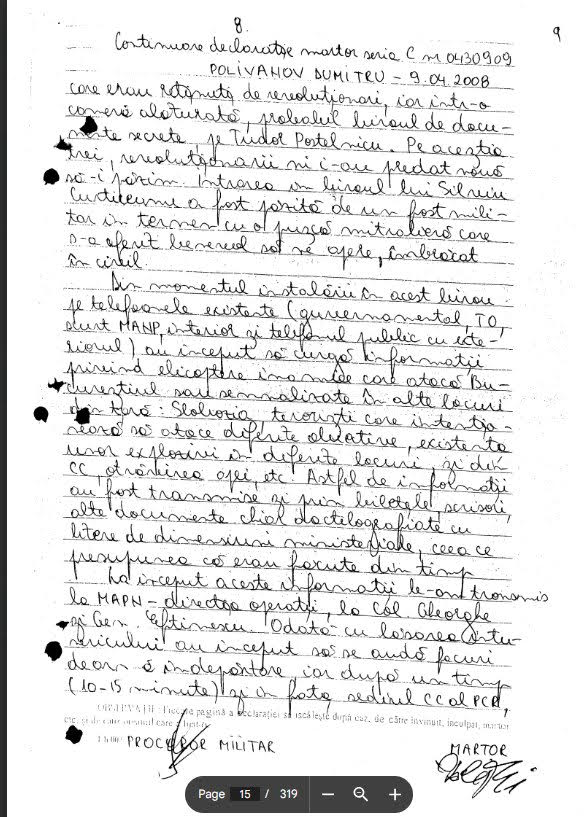 8.
9
Continuare declarație martor seria C nr 0430909
POLIVANOV DUMITRU – 9.04.2008
care erau reținuți de revoluționari, iar într-o
cameră alăturată, probabil biroul de docu-
mente secrete, pe Tudor Postelnicu. Pe aceștia
trei, revoluționarii ni i-au predat nouă
să-i păzim. Intrarea în biroul lui Silviu
Curticeanu a fost păzită de un fost mili-
tar în termen cu o pușcă mitralieră care
s-a oferit benevol să ne ajute, îmbrăcat
în civil.
Din momentul instalării în acest birou
pe telefoanele existente (guvernamental, TO,
scurt MAPN, interior și telefonul public cu exte-
riorul) au început să curgă informații
privind elicoptere inamice care atacă Bu-
cureștiul sau semnalizate în alte locuri
din țară: Slobozia, teroriști care intențio-
nează să atace diferite obiective, existența
unor explozivi în diferite locuri, și din
CC, otrăvirea apei, etc. Astfel de informații
au fost transmise și prin bilețele, scrisori,
alte documente chiar dactilografiate cu
litere de dimensiuni ministeriale, ceea ce
presupunea că erau făcute din timp
La început aceste informații le-am transmis
la MAPN – direcția operații, la Col. Gheorghe
și Gen. Eftimescu. Odată cu lăsarea întu-
nericului au început să se audă focuri
de armă în depărtare iar după un timp
(10-15 minute) și în fața sediul CC al PCR,
OBSERVAȚII: Fiecare pagină a declarației se iscălește după caz, de către învinuit, inculpat, martor
etc. și de către organul care
PROCUROR MILITAR
MARTOR
Page 15 / 319